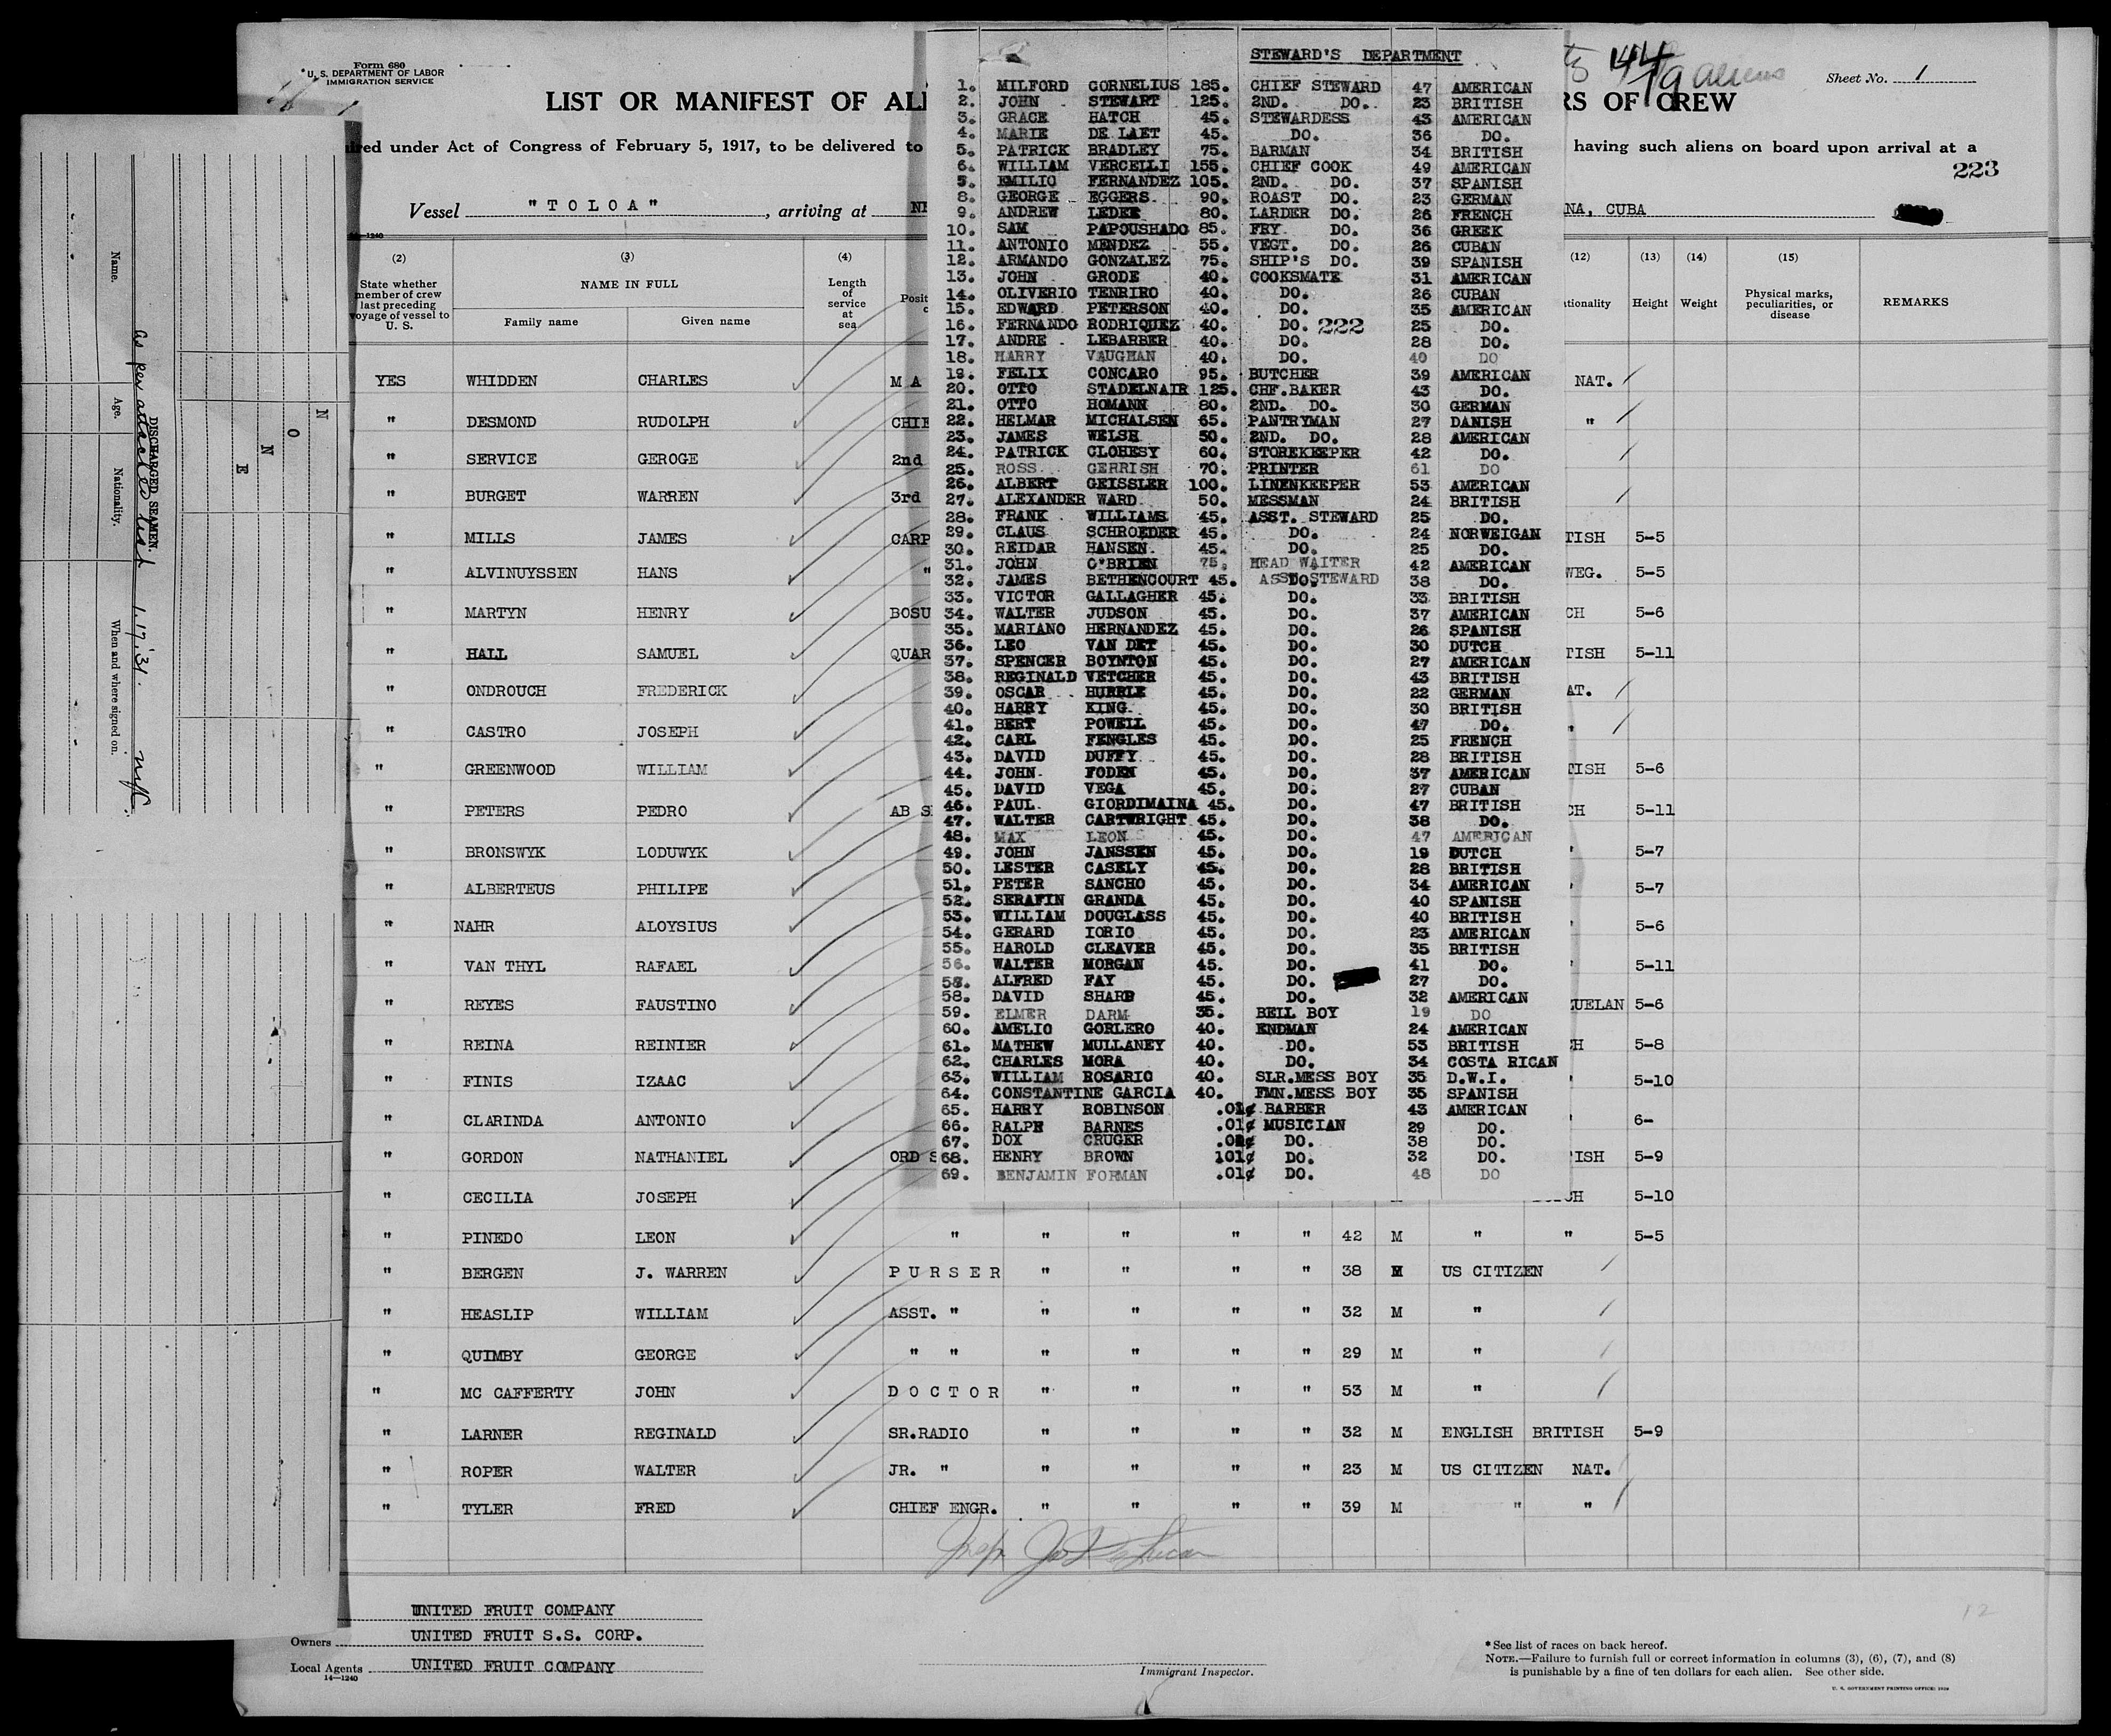 Form 680
U. S. DEPARTMENT OF LABOR
IMMIGRATION SERVICE
LIST OR MANIFEST OF AL
RS OF CREW
44
19 aliens
Sheet No. 1
red under Act of Congress of February 5, 1917, to be delivered to
having such aliens on board upon arrival at a
223
Vessel "TOLOA", arriving at NE
NA, CUBA
14—1240
(2) (3) (4) (12) (13) (14) (15)
State whether member of crew last preceding voyage of vessel to U. S.
NAME IN FULL
Family name Given name
Length of service at sea
Posit
tionality Height Weight
Physical marks, peculiarities, or disease
REMARKS
YES WHIDDEN CHARLES MA NAT.
" DESMOND RUDOLPH CHIE "
" SERVICE GEROGE 2nd
" BURGET WARREN 3rd
" MILLS JAMES CARP TISH 5-5
" ALVINUYSSEN HANS " WEG. 5-5
" MARTYN HENRY BOSU CH 5-6
" HALL SAMUEL QUAR TISH 5-11
" ONDROUCH FREDERICK AT.
" CASTRO JOSEPH "
" GREENWOOD WILLIAM TISH 5-6
" PETERS PEDRO AB S CH 5-11
" BRONSWYK LODUWYK " 5-7
" ALBERTEUS PHILIPE " 5-7
" NAHR ALOYSIUS " 5-6
" VAN THYL RAFAEL " 5-11
" REYES FAUSTINO ZUELAN 5-6
" REINA REINIER CH 5-8
" FINIS IZAAC " 5-10
" CLARINDA ANTONIO " 6-
" GORDON NATHANIEL ORD S ISH 5-9
" CECILIA JOSEPH CH 5-10
" PINEDO LEON " " " " " 42 M " " 5-5
" BERGEN J. WARREN PURSER " " " " 38 M US CITIZEN
" HEASLIP WILLIAM ASST. " " " " " 32 M "
" QUIMBY GEORGE " " " " " " 29 M "
" MC CAFFERTY JOHN DOCTOR " " " " 53 M "
" LARNER REGINALD SR.RADIO " " " " 32 M ENGLISH BRITISH 5-9
" ROPER WALTER JR. " " " " " 23 M US CITIZEN NAT.
" TYLER FRED CHIEF ENGR. " " " " 39 M " "
STEWARD'S DEPARTMENT
1. MILFORD CORNELIUS 185. CHIEF STEWARD 47 AMERICAN
2. JOHN STEWART 125. 2ND. DO. 23 BRITISH
3. GRACE HATCH 45. STEWARDESS 43 AMERICAN
4. MARIE DE LAET 45. DO. 36 DO.
5. PATRICK BRADLEY 75. BARMAN 34 BRITISH
6. WILLIAM VERCELLI 155. CHIEF COOK 49 AMERICAN
7. EMILIO FERNANDEZ 105. 2ND. DO. 37 SPANISH
8. GEORGE EGGERS 90. ROAST DO. 23 GERMAN
9. ANDREW LEDEE 80. LARDER DO. 26 FRENCH
10. SAM PAPOUSHADO 85. FRY DO. 36 GREEK
11. ANTONIO MENDEZ 55. VEGT. DO. 26 CUBAN
12. ARMANDO GONZALEZ 75. SHIP'S DO. 39 SPANISH
13. JOHN GRODE 40. COOKSMATE 31 AMERICAN
14. OLIVERIO TENRIRO 40. DO. 26 CUBAN
15. EDWARD PETERSON 40. DO. 35 AMERICAN
16. FERNANDO RODRIQUEZ 40. DO. 222 25 DO.
17. ANDRE LEBARBER 40. DO. 28 DO.
18. HARRY VAUGHAN 40. DO. 40 DO
19. FELIX CONCARO 95. BUTCHER 39 AMERICAN
20. OTTO STADELNAIR 125. CHF.BAKER 43 DO.
21. OTTO HOMANN 80. 2ND. DO. 30 GERMAN
22. HELMAR MICHALSEN 65. PANTRYMAN 27 DANISH
23. JAMES WELSH 50. 2ND. DO. 28 AMERICAN
24. PATRICK CLOHESY 60. STOREKEEPER 42 DO.
25. ROSS GERRISH 70. PRINTER 61 DO
26. ALBERT GEISSLER 100. LINENKEEPER 53 AMERICAN
27. ALEXANDER WARD 50. MESSMAN 24 BRITISH
28. FRANK WILLIAMS 45. ASST. STEWARD 25 DO.
29. CLAUS SCHROEDER 45. DO. 24 NORWEIGAN
30. REIDAR HANSEN 45. DO. 25 DO.
31. JOHN O'BRIEN 75. HEAD WAITER 42 AMERICAN
32. JAMES BETHENCOURT 45. ASST STEWARD 38 DO.
33. VICTOR GALLAGHER 45. DO. 33 BRITISH
34. WALTER JUDSON 45. DO. 37 AMERICAN
35. MARIANO HERNANDEZ 45. DO. 26 SPANISH
36. LEO VAN DET 45. DO. 30 DUTCH
37. SPENCER BOYNTON 45. DO. 27 AMERICAN
38. REGINALD VETCHER 45. DO. 43 BRITISH
39. OSCAR HURRLE 45. DO. 22 GERMAN
40. HARRY KING 45. DO. 30 BRITISH
41. BERT POWELL 45. DO. 47 DO.
42. CARL FENGLES 45. DO. 25 FRENCH
43. DAVID DUFFY 45. DO. 28 BRITISH
44. JOHN FODEN 45. DO. 37 AMERICAN
45. DAVID VEGA 45. DO. 27 CUBAN
46. PAUL GIORDIMAINA 45. DO. 47 BRITISH
47. WALTER CARTWRIGHT 45. DO. 38 DO.
48. MAX LEON 45. DO. 47 AMERICAN
49. JOHN JANSSEN 45. DO. 19 DUTCH
50. LESTER CASELY 45. DO. 28 BRITISH
51. PETER SANCHO 45. DO. 34 AMERICAN
52. SERAFIN GRANDA 45. DO. 40 SPANISH
53. WILLIAM DOUGLASS 45. DO. 40 BRITISH
54. GERARD IORIO 45. DO. 23 AMERICAN
55. HAROLD CLEAVER 45. DO. 35 BRITISH
56. WALTER MORGAN 45. DO. 41 DO.
58. ALFRED FAY 45. DO. 27 DO.
58. DAVID SHARP 45. DO. 32 AMERICAN
59. ELMER DARM 35. BELL BOY 19 DO
60. AMELIO GORLERO 40. ENDMAN 24 AMERICAN
61. MATHEW MULLANEY 40. DO. 53 BRITISH
62. CHARLES MORA 40. DO. 34 COSTA RICAN
63. WILLIAM ROSARIO 40. SLR.MESS BOY 35 D.W.I.
64. CONSTANTINE GARCIA 40. FMN.MESS BOY 35 SPANISH
65. HARRY ROBINSON .01¢ BARBER 43 AMERICAN
66. RALPH BARNES .01¢ MUSICIAN 29 DO.
67. DOX CRUGER .01¢ DO. 38 DO.
68. HENRY BROWN 101¢ DO. 32 DO.
69. BENJAMIN FORMAN .01¢ DO. 48 DO
DISCHARGED SEAMEN.
Name. Age. Nationality. When and where signed on.
As per attached list 1.17.'31. NYK.
N O N E
UNITED FRUIT COMPANY
Owners UNITED FRUIT S.S. CORP.
Local Agents UNITED FRUIT COMPANY
14—1240
Immigrant Inspector.
12
*See list of races on back hereof.
NOTE.—Failure to furnish full or correct information in columns (3), (6), (7), and (8)
is punishable by a fine of ten dollars for each alien. See other side.
U. S. GOVERNMENT PRINTING OFFICE: 1929